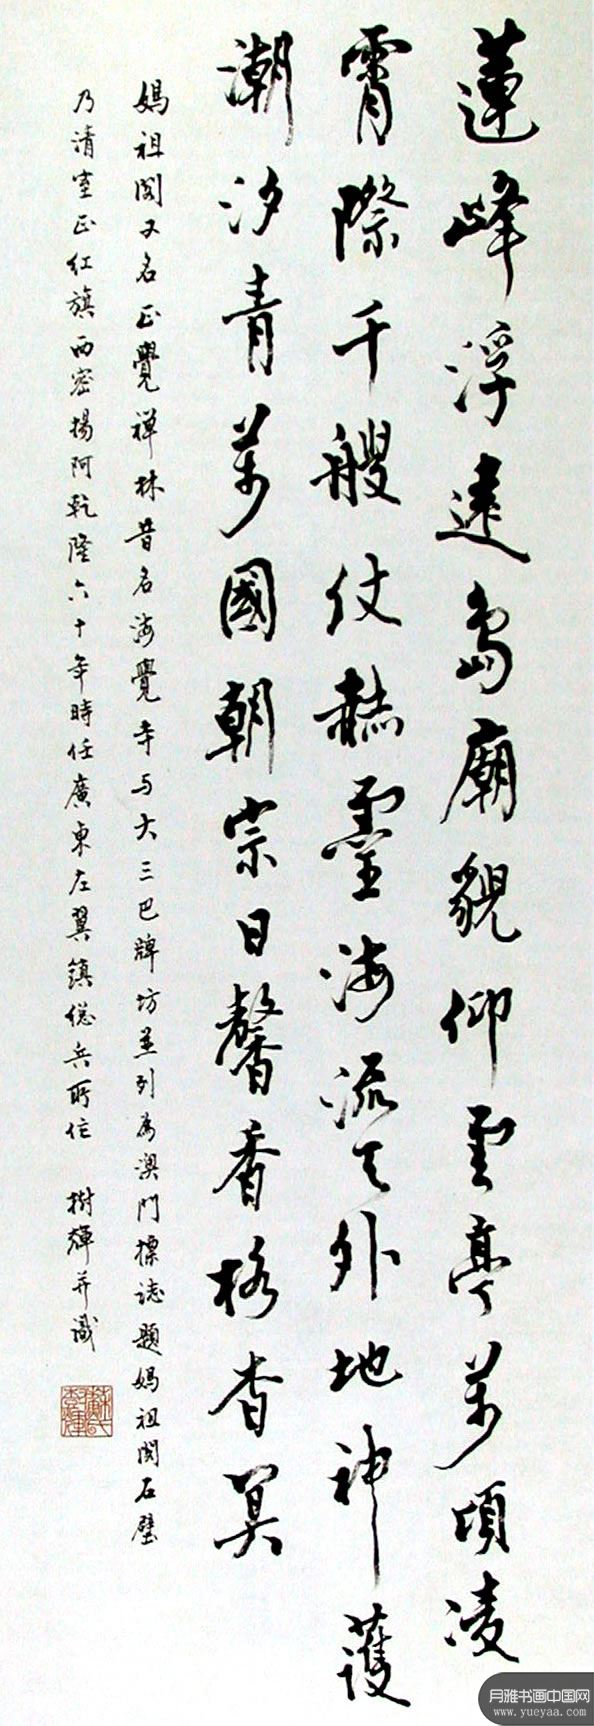 蓮峰浮遠島廟貌仰雲亭萬頃凌
霄際千艘仗赫靈海流天外地神護
潮汐青萬國朝宗日馨香格杳冥
媽祖閣又名正覺禅林昔名海覺寺与大三巴牌坊並列為澳門標誌題媽祖閣石壁
乃清室正红旗西密揚阿乾隆六十年時任廣東左翼鎮總兵所作 樹輝并識
月雅书画中国网
www.yueyaa.com